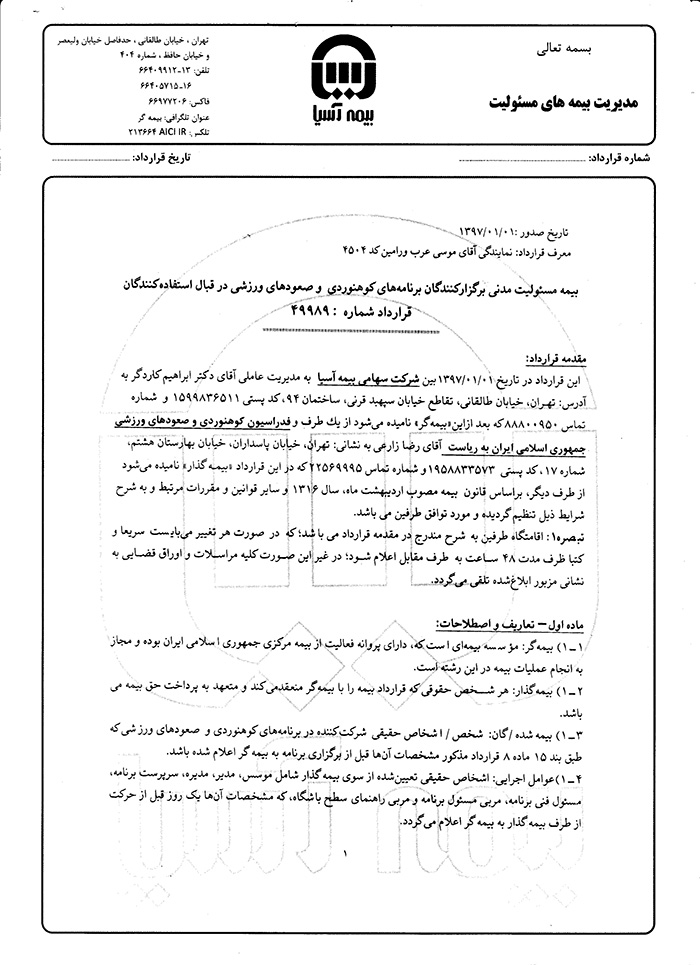 بسمه تعالی
مدیریت بیمه های مسئولیت
بیمه آسیا
تهران ، خیابان طالقانی ، حدفاصل خیابان ولیعصر
و خیابان حافظ ، شماره ۴۰۴
تلفن: ۱۳-۶۶۴۰۹۹۱۲
۱۶-۶۶۴۰۵۷۱۵
فاکس: ۶۶۹۷۷۲۰۶
عنوان تلگرافی: بیمه گر
تلکس: ۲۱۳۶۶۴ AICI IR
شماره قرارداد:
تاریخ قرارداد:
تاریخ صدور :۱۳۹۷/۰۱/۰۱
معرف قرارداد: نمایندگی آقای موسی عرب ورامین کد ۴۵۰۴
بیمه مسئولیت مدنی برگزارکنندگان برنامه‌های کوهنوردی و صعودهای ورزشی در قبال استفاده‌کنندگان
قرارداد شماره : ۴۹۹۸۹
مقدمه قرارداد:
این قرارداد در تاریخ ۱۳۹۷/۰۱/۰۱ بین شرکت سهامی بیمه آسیا به مدیریت عاملی آقای دکتر ابراهیم کاردگر به
آدرس: تهران، خیابان طالقانی، تقاطع خیابان سپهبد قرنی، ساختمان ۹۴، کد پستی ۱۵۹۹۸۳۶۵۱۱ و شماره
تماس ۸۸۸۰۰۹۵۰ که بعد ازاین«بیمه‌گر» نامیده می‌شود از یك طرف و فدراسیون کوهنوردی و صعودهای ورزشی
جمهوری اسلامی ایران به ریاست آقای رضا زارعی به نشانی: تهران، خیابان پاسداران، خیابان بهارستان هشتم،
شماره ۱۷، کد پستی ۱۹۵۸۸۳۳۵۷۳ و شماره تماس ۲۲۵۶۹۹۹۵ که در این قرارداد «بیمه گذار» نامیده می‌شود
از طرف دیگر، براساس قانون بیمه مصوب اردیبهشت ماه، سال ۱۳۱۶ و سایر قوانین و مقررات مرتبط و به شرح
شرایط ذیل تنظیم گردیده و مورد توافق طرفین می باشد.
تبصره۱: اقامتگاه طرفین به شرح مندرج در مقدمه قرارداد می باشد؛که در صورت هر تغییر می‌بایست سریعا و
کتبا ظرف مدت ۴۸ ساعت به طرف مقابل اعلام شود؛ در غیر این صورت کلیه مراسلات و اوراق قضایی به
نشانی مزبور ابلاغ‌شده تلقی می‌گردد.
ماده اول – تعاریف و اصطلاحات:
۱-۱) بیمه‌گر: مؤسسه بیمه‌ای است‌که، دارای پروانه فعالیت از بیمه مرکزی جمهوری اسلامی ایران بوده و مجاز
به انجام عملیات بیمه در این رشته است.
۱-۲) بیمه‌گذار: هر شخص حقوقی‌که قرارداد بیمه را با بیمه‌گر منعقدمی‌کند و متعهد به پرداخت حق بیمه می
باشد.
۱-۳) بیمه شده /گان: شخص/ اشخاص حقیقی شرکت‌کننده در برنامه‌های کوهنوردی و صعودهای ورزشی‌که
طبق بند ۱۵ ماده ۸ قرارداد مذکور مشخصات آن‌ها قبل از برگزاری برنامه به بیمه گر اعلام شده باشد.
۱-۴)عوامل اجرایی: اشخاص حقیقی تعیین‌شده از سوی بیمه‌گذار شامل موسس، مدیر، مدیره، سرپرست برنامه،
مسئول فنی برنامه، مربی مسئول برنامه و مربی راهنمای سطح باشگاه، که مشخصات آن‌ها یک روز قبل از حرکت
از طرف بیمه‌گذار به بیمه‌گر اعلام می‌گردد.
۱